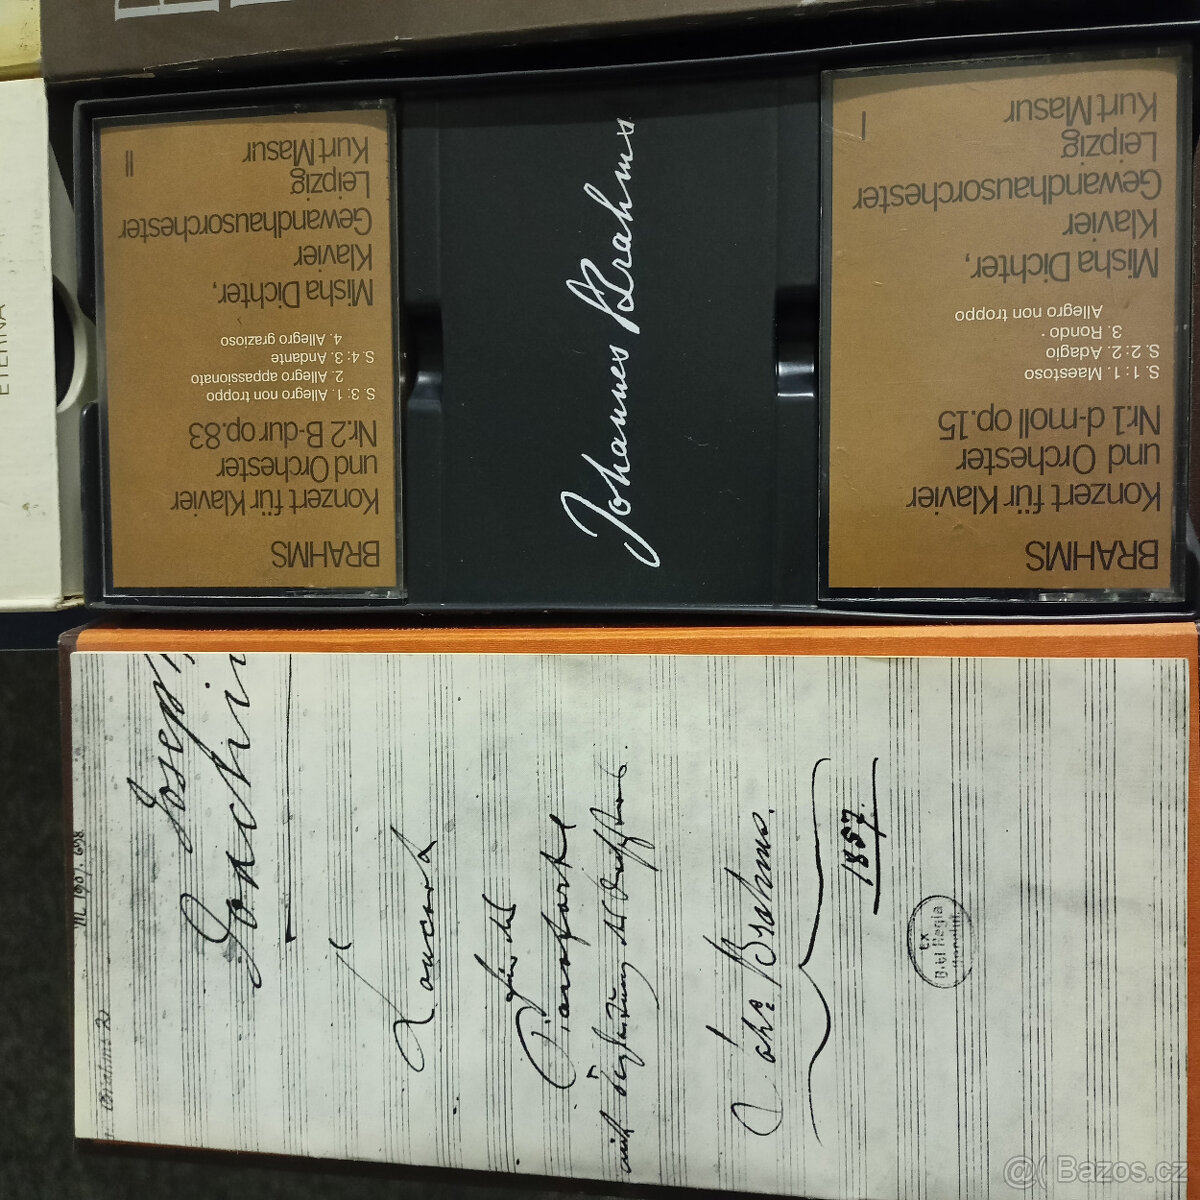 ETERNA
BRAHMS
Konzert für Klavier
und Orchester
Nr.2 B-dur op.83
S. 3: 1. Allegro non troppo
2. Allegro appassionato
S. 4: 3. Andante
4. Allegro grazioso
Misha Dichter,
Klavier
Gewandhausorchester
Leipzig
Kurt Masur
II
Johannes Brahms
BRAHMS
Konzert für Klavier
und Orchester
Nr.1 d-moll op.15
S. 1: 1. Maestoso
S. 2: 2. Adagio
3. Rondo
Allegro non troppo
Misha Dichter,
Klavier
Gewandhausorchester
Leipzig
Kurt Masur
I
Joseph
Joachim
Concert
für das
Pianoforte
mit Begleitung des Orchesters.
Johs Brahms.
1857.
Ex
Bibl Regia
@( Bazos.cz